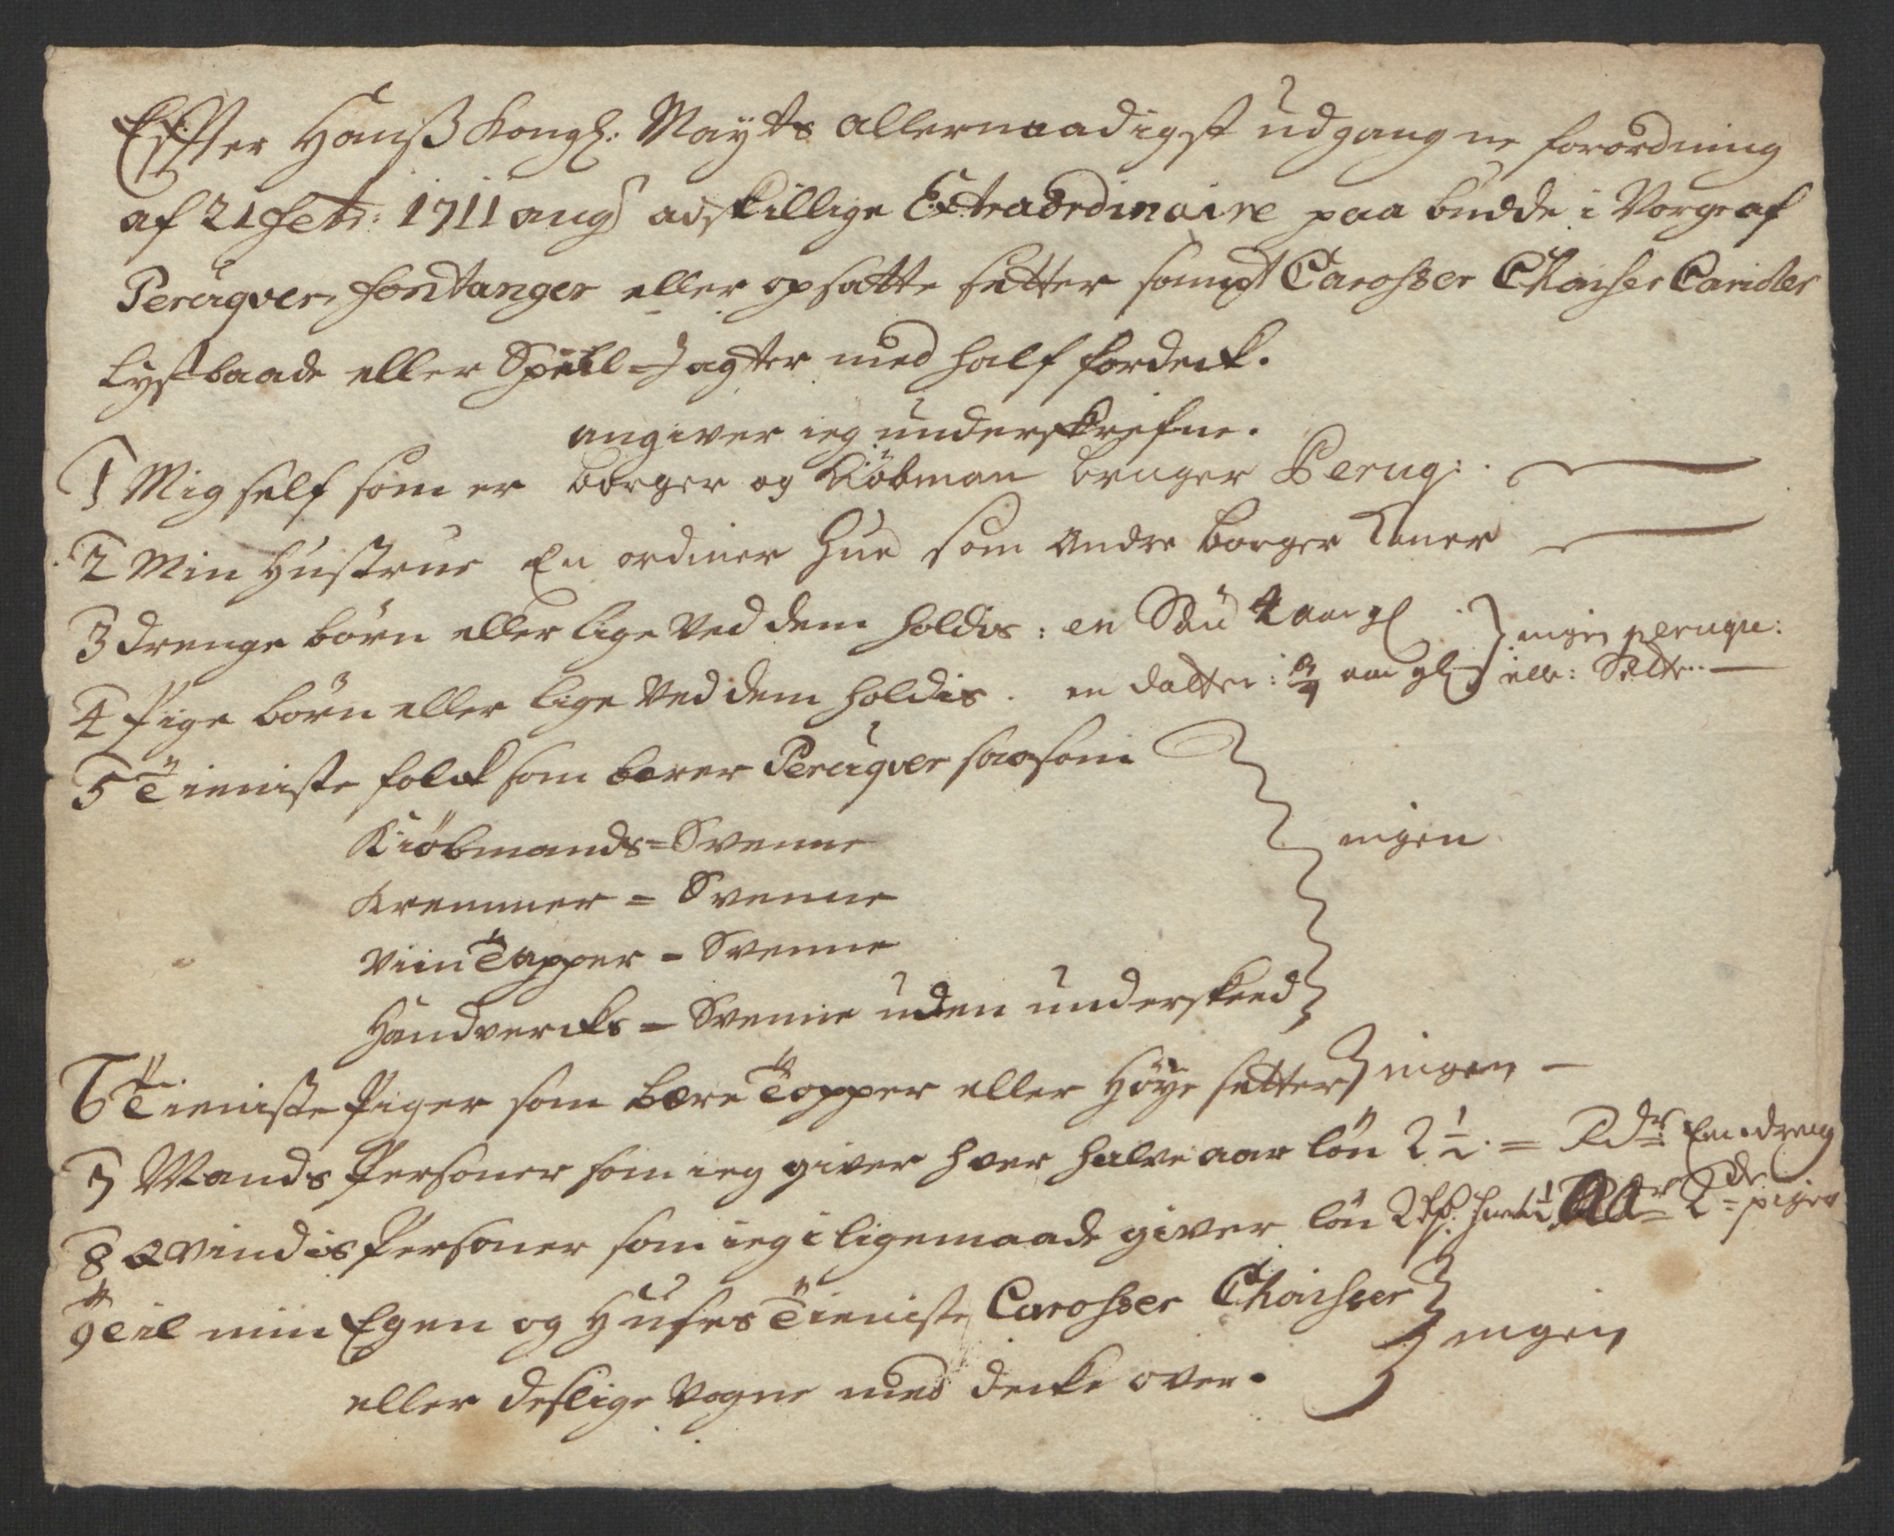 Effter Hanß Kongl: Mayts allernaadigst udgangne forordning
af 21 Feb: 1711 ang adskillige Extraordinaire paa budde i Norge af
Peruqver, fontanger eller opsatte setter sampt Carosser Chaiser Carioler
Lystbaade eller Speill=Jagter med half fordeck.
angiver ieg underskrefne.
1 Mig self som er borger og Kiöbman bruger Peruq:
2 Min Hustrue En ordiner Hue som Andre borger Koner
3 drenge börn eller lige ved dem holdes: en Sön 4 aar gl
ingen peruqu:
4 Pige börn eller lige Ved dem holdis. en datter: aar gl
eller: Setter
5 Tieniste folck som bærer Peruqver saasom
Kiöbmands=Svenne
ingen
Kremmer=Svenne
Viin Tapper=Svenne
Handvercks=Svenne uden underskeed
6 Tieniste Piger som bære Topper eller Höye setter ingen
7 Mands Personer som ieg giver hver halve aar lön 2 1/2 = Rdr En dreng
8 Qvindis Personer som ieg i ligemaade giver lön 2 piger
9 Til min Egen og Huses Tieniste Carosser Chaisser
ingen
eller deslige Vogne med decke over.